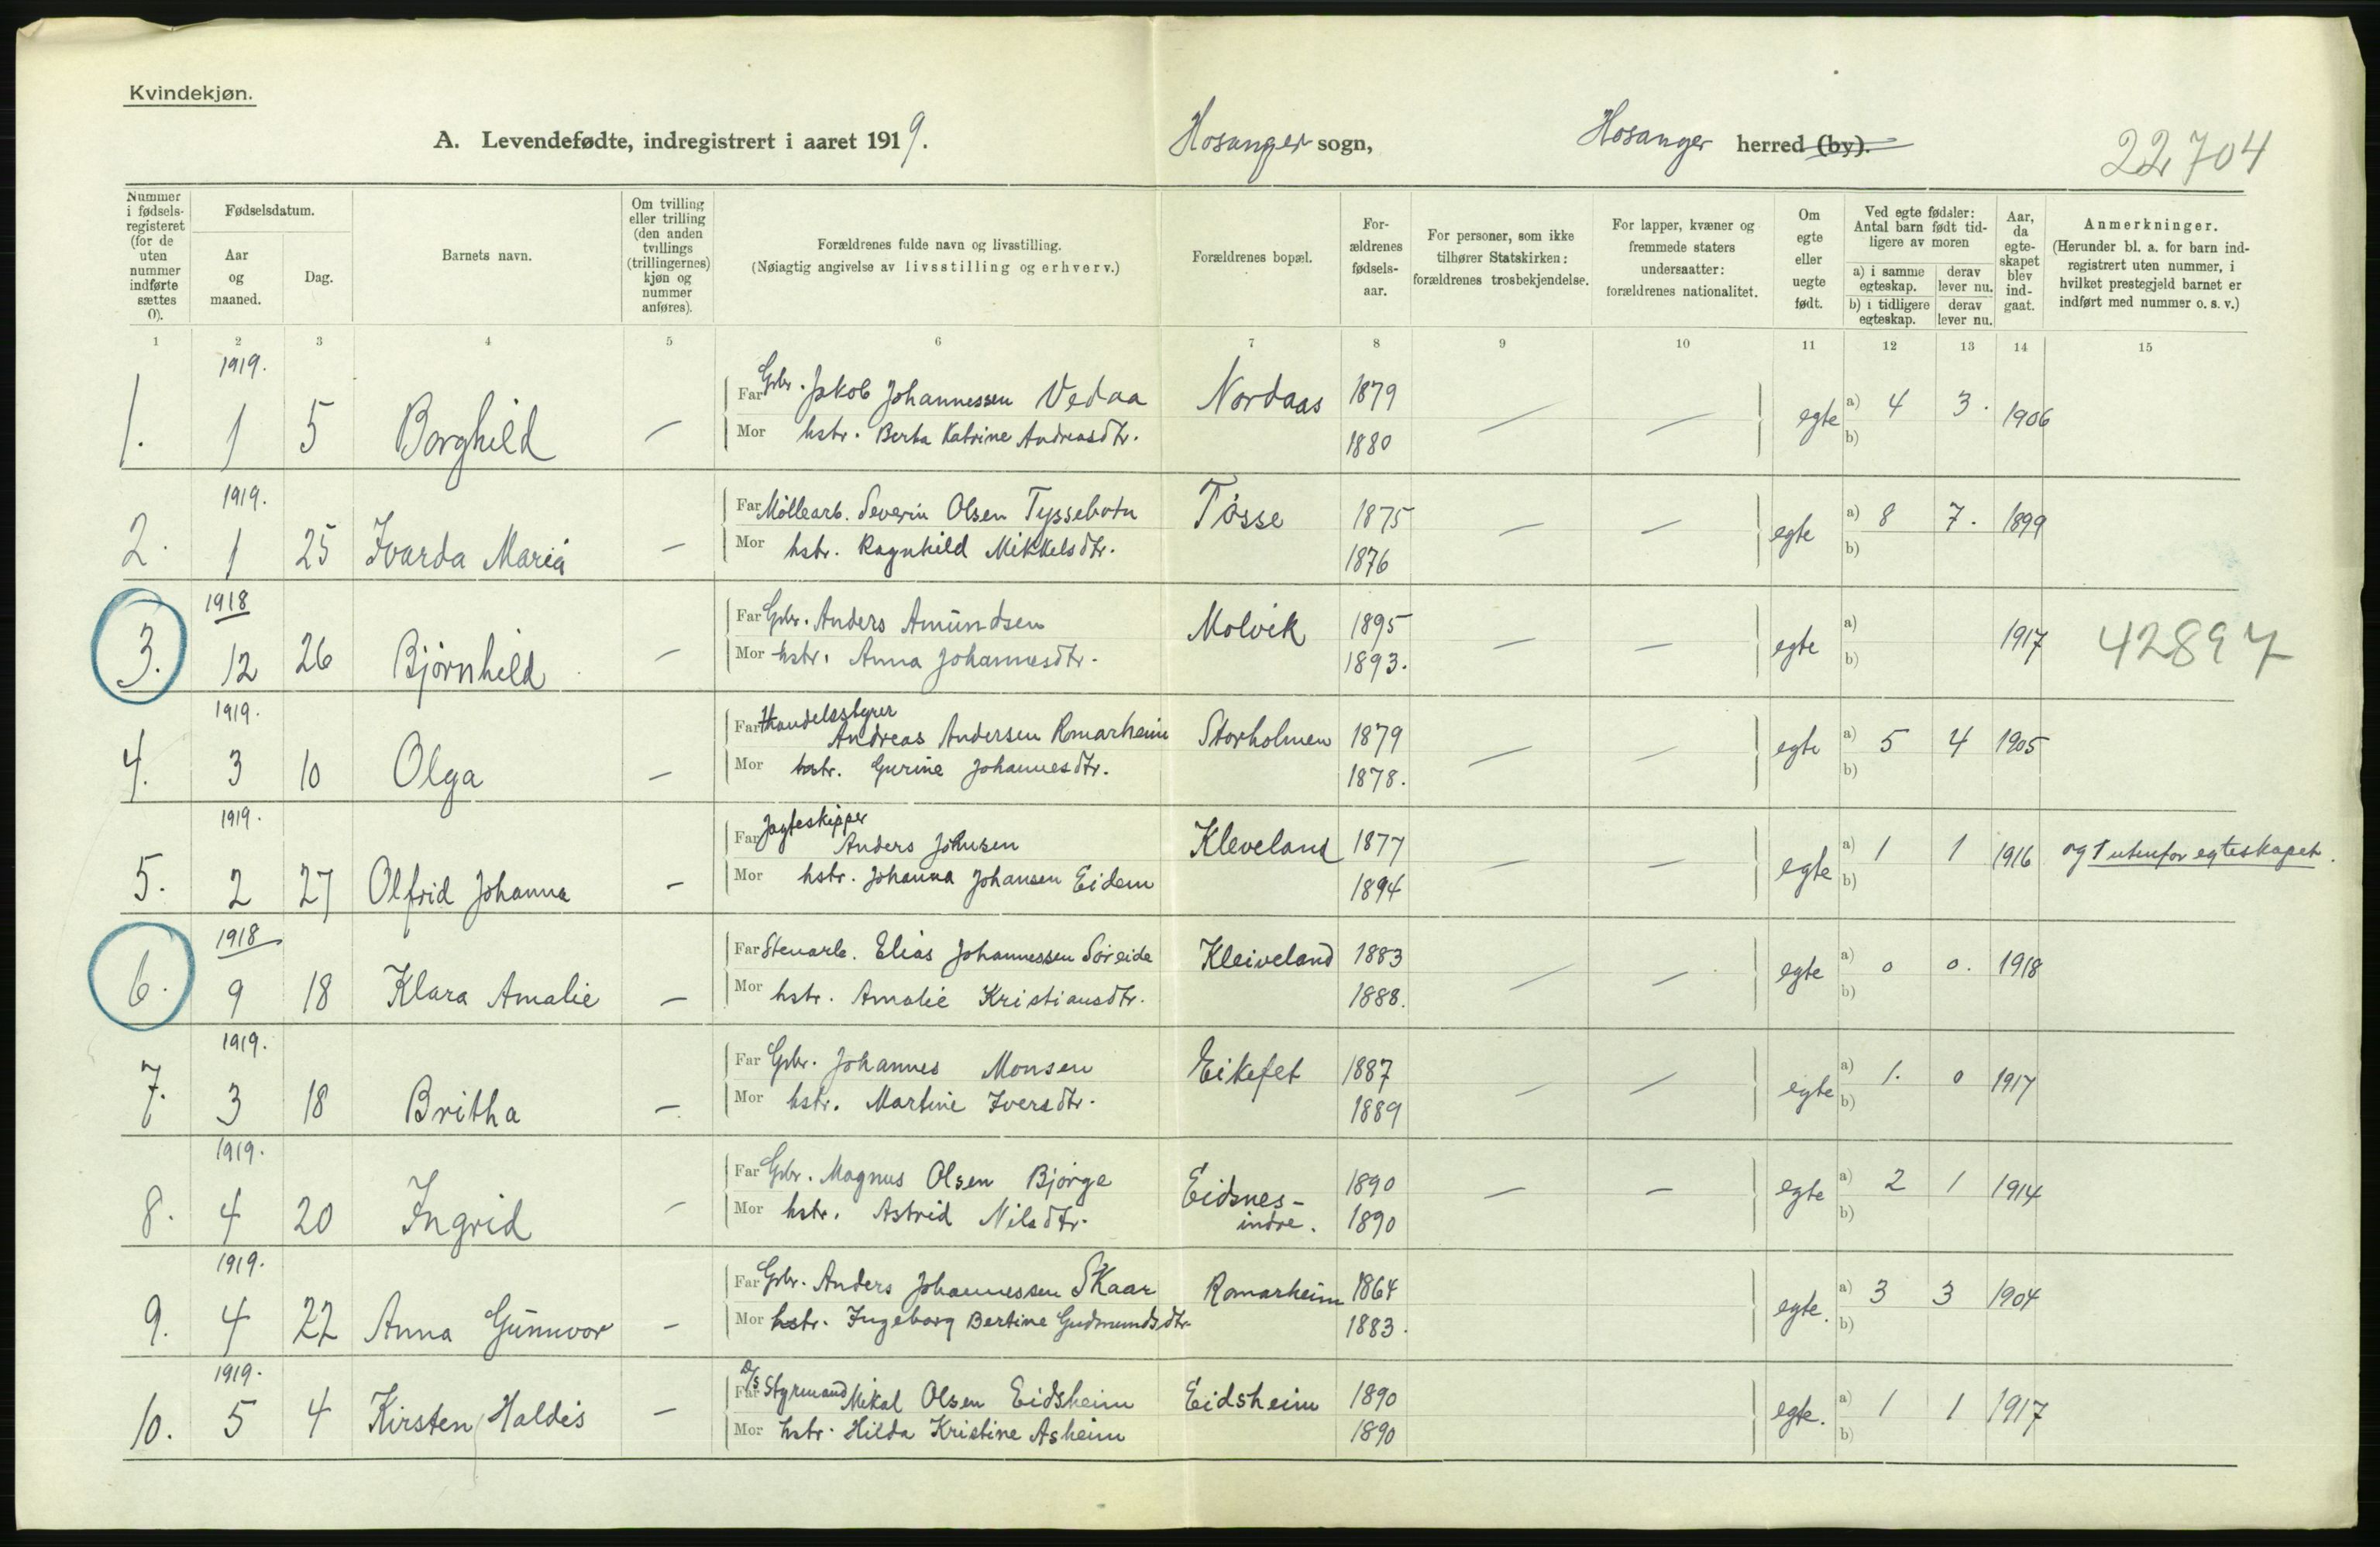 Kvindekjøn.
A. Levendefødte, indregistrert i aaret 1919. Hosanger sogn, Hosanger herred (by). 22704
Nummer i fødselsregisteret (for de uten nummer indførte sættes 0).
Fødselsdatum.
Aar og maaned.
Dag.
Barnets navn.
Om tvilling eller trilling (den anden tvillings (trillingernes) kjøn og nummer anføres).
Forældrenes fulde navn og livsstilling.
(Nøiagtig angivelse av livsstilling og erhverv.)
Forældrenes bopæl.
Forældrenes fødselsaar.
For personer, som ikke tilhører Statskirken: forældrenes trosbekjendelse.
For lapper, kvæner og fremmede staters undersaatter: forældrenes nationalitet.
Om egte eller uegte født.
Ved egte fødsler: Antal barn født tidligere av moren
a) i samme egteskap. derav lever nu.
b) i tidligere egteskap. derav lever nu.
Aar, da egteskapet blev indgaat.
Anmerkninger.
(Herunder bl. a. for barn indregistrert uten nummer, i hvilket prestegjeld barnet er indført med nummer o. s. v.)
1 2 3 4 5 6 7 8 9 10 11 12 13 14 15
1919.
1. 1 5 Borghild — Far Gbr. Jakob Johannessen Vedaa Nordaas 1879 — — egte a) 4 3. 1906
Mor hstr. Berta Katrine Andreasdtr. 1880 b)
1919.
2. 1 25 Ivarda Maria — Far Möllearb. Severin Olsen Tyssebotn Tösse 1875 — — egte a) 8 7. 1899
Mor hstr. Ragnhild Mikkelsdtr. 1876 b)
1918
3. 12 26 Björnhild — Far Gbr. Anders Amundsen Molvik 1895 — — egte a) 1917 42897
Mor hstr. Anna Johannesdtr. 1893. b)
1919.
4. 3 10 Olga — Far Handelsstyrer Andreas Andersen Romarheim Storholmen 1879 — — egte a) 5 4 1905
Mor hstr. Gurine Johannesdtr. 1878. b)
1919.
5. 2 27 Olfrid Johanna — Far Jagteskipper Anders Johnsen Kleveland 1877 — — egte a) 1 1 1916 og 1 utenfor egteskapet.
Mor hstr. Johanna Johansen Eidem 1894 b)
1918
6. 9 18 Klara Amalie — Far Stenarb. Elias Johannessen Söreide Kleiveland 1883 — — egte a) 0 0. 1918
Mor hstr. Amalie Kristiansdtr. 1888. b)
1919.
7. 3 18 Britha — Far Gbr. Johannes Monsen Eikefet 1887 — — egte a) 1. 0 1917
Mor hstr. Martine Iversdtr. 1889 b)
1919.
8. 4 20 Ingrid — Far Gbr. Magnus Olsen Bjørge Eidsnes- 1890 — — egte a) 2 1 1914
Mor hstr. Astrid Nilsdtr. indre. 1890 b)
1919.
9. 4 22 Anna Gunnvor — Far Gbr. Anders Johannessen Skaar Romarheim 1864 egte. a) 3 3 1904
Mor hstr. Ingeborg Bertine Gudmundsdtr 1883. b)
1919.
10. 5 4 Kirsten Haldis — Far D/S Styrmand Mikal Olsen Eidsheim Eidsheim 1890 egte. a) 1 1 1917
Mor hstr. Hilda Kristine Asheim 1890 b)